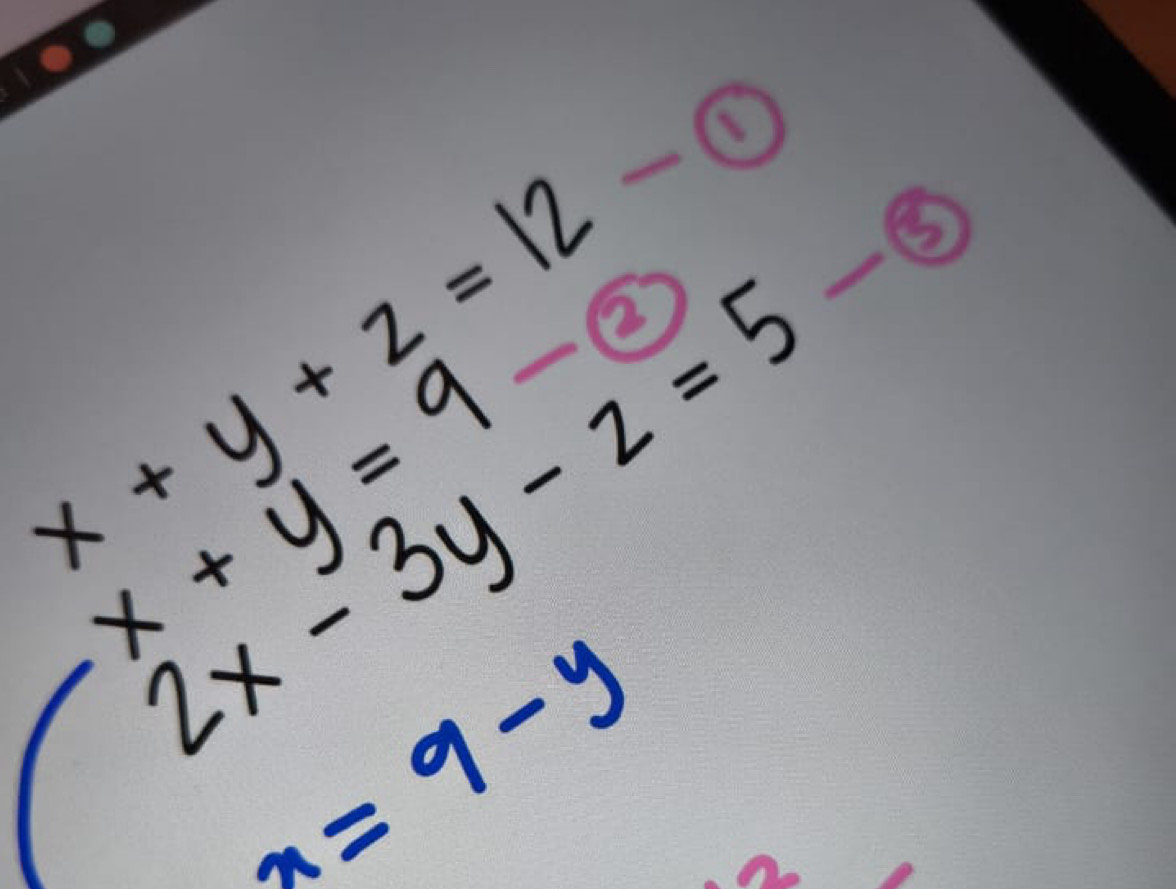 x + y + z = 12 — ①
x + y = 9 — ②
2x - 3y - z = 5 — ③
x = 9 - y